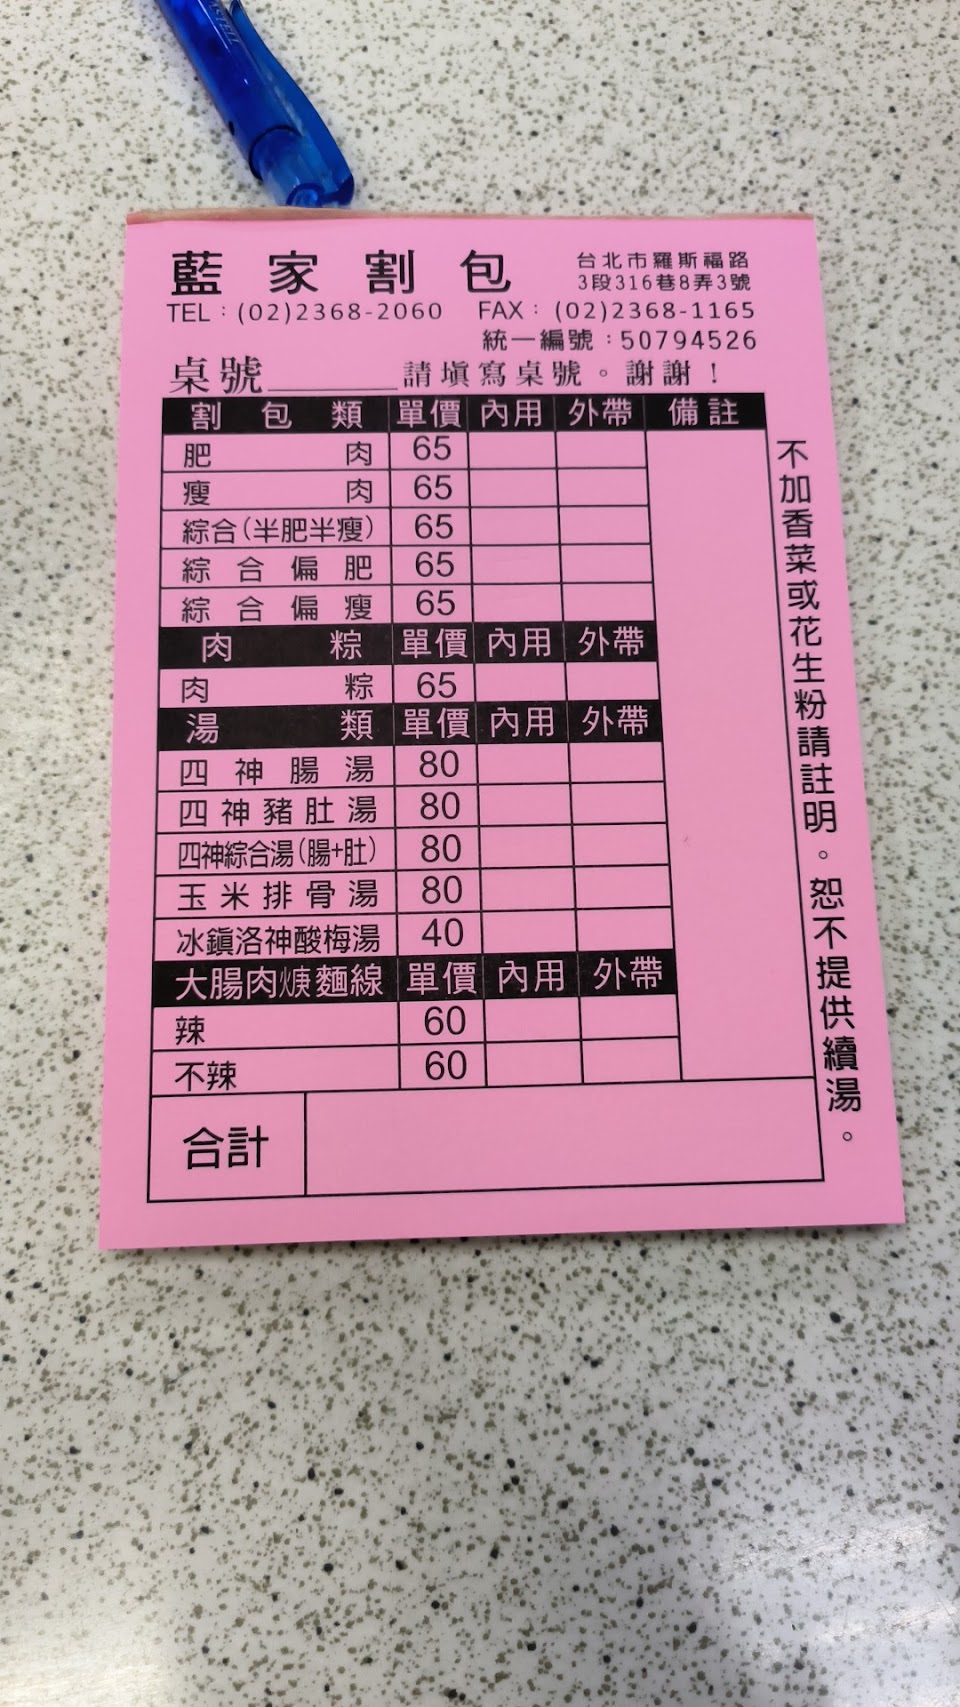 藍家割包
台北市羅斯福路
3段316巷8弄3號
TEL：(02)2368-2060 FAX：(02)2368-1165
統一編號：50794526
桌號________請填寫桌號。謝謝！
割包類 單價 內用 外帶 備註
肥肉 65
瘦肉 65
綜合(半肥半瘦) 65
綜合偏肥 65
綜合偏瘦 65
肉粽 單價 內用 外帶
肉粽 65
湯類 單價 內用 外帶
四神腸湯 80
四神豬肚湯 80
四神綜合湯(腸+肚) 80
玉米排骨湯 80
冰鎮洛神酸梅湯 40
大腸肉焿麵線 單價 內用 外帶
辣 60
不辣 60
合計
不加香菜或花生粉請註明。恕不提供續湯。